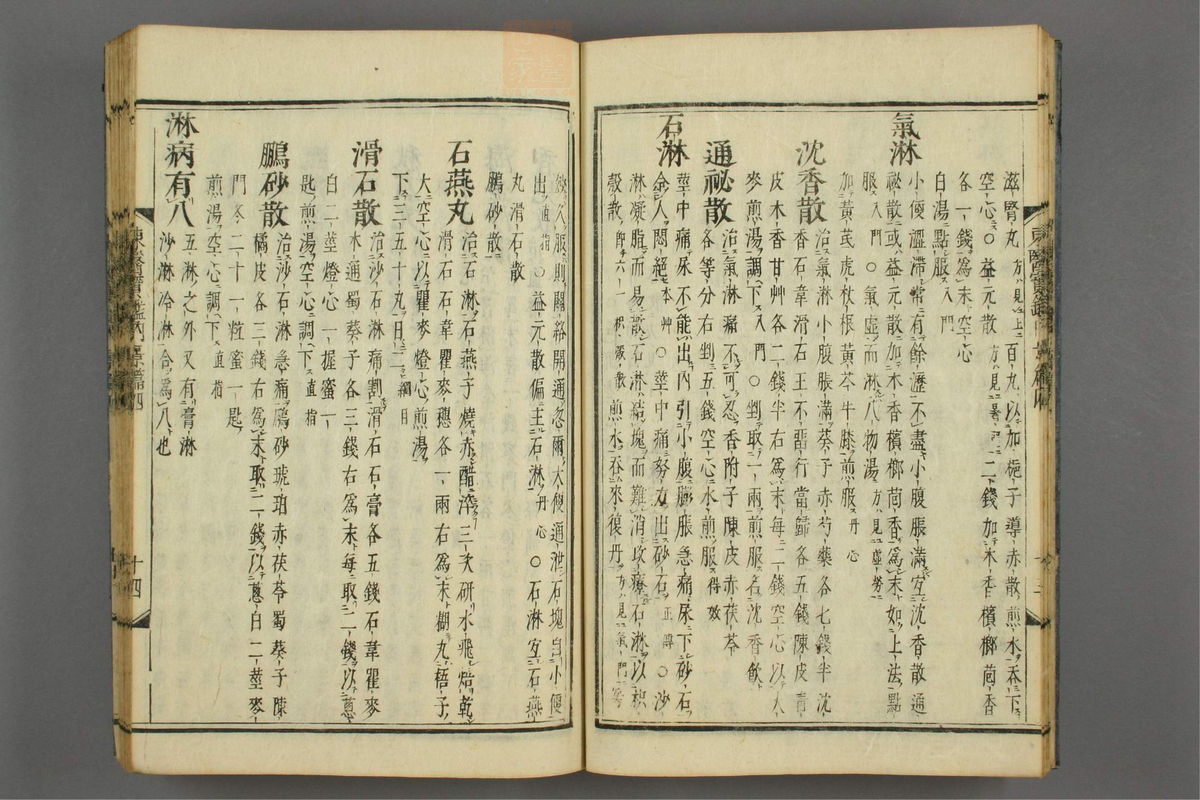 滋腎丸方見上百丸以加梔子導赤散煎水吞下
空心○益元散方見暑門二錢加木香檳榔茴香
各一錢爲末空心
白湯點服入門
氣淋
小便澁滯常有餘瀝不盡小腹脹滿宜沈香散通
祕散或益元散加木香檳榔茴香爲末如上法點
服入門○氣虛而淋八物湯方見虛勞
加黃芪虎杖根黃芩牛膝煎服丹心
沈香散
治氣淋小腹脹滿葵子赤芍藥各七錢半沈
香石韋滑石王不留行當歸各五錢陳皮靑
皮木香甘艸各二錢半右爲末每二錢空心以大
麥煎湯調下入門○剉取一兩煎服名沈香飮
通祕散
治氣淋痛不可忍香附子陳皮赤茯苓
各等分右剉五錢空心水煎服得效
石淋
莖中痛尿不能出內引小腹膨脹急痛尿下砂石
令人悶絕本艸○莖中痛努力出砂石正傳○沙
淋凝脂而易散石淋結塊而難消攻療石淋以枳
殼散煎水吞來復丹
久服則關絡開通忽爾大便通泄石塊自小便
出直指○益元散偏主石淋丹心○石淋宜石燕
丸滑石散
鵬砂散
石燕丸
治石淋石燕子燒赤醋淬三次研水飛焙乾
滑石石韋瞿麥穗各一兩右爲末糊丸梧子
大空心以瞿麥燈心煎湯
下三五十丸日二三綱目
滑石散
治沙石淋痛割滑石石膏各五錢石韋瞿麥
木通蜀葵子各三錢右爲末每取二錢以葱
白二莖燈心一握蜜一
匙煎湯空心調下直指
鵬砂散
治沙石淋急痛鵬砂琥珀赤茯苓蜀葵子陳
橘皮各三錢右爲末取二錢以葱白二莖麥
門冬二十一粒蜜一匙
煎湯空心調下直指
淋病有八
五淋之外又有膏淋
沙淋冷淋合爲八也
東醫寶鑑內景篇四
十四